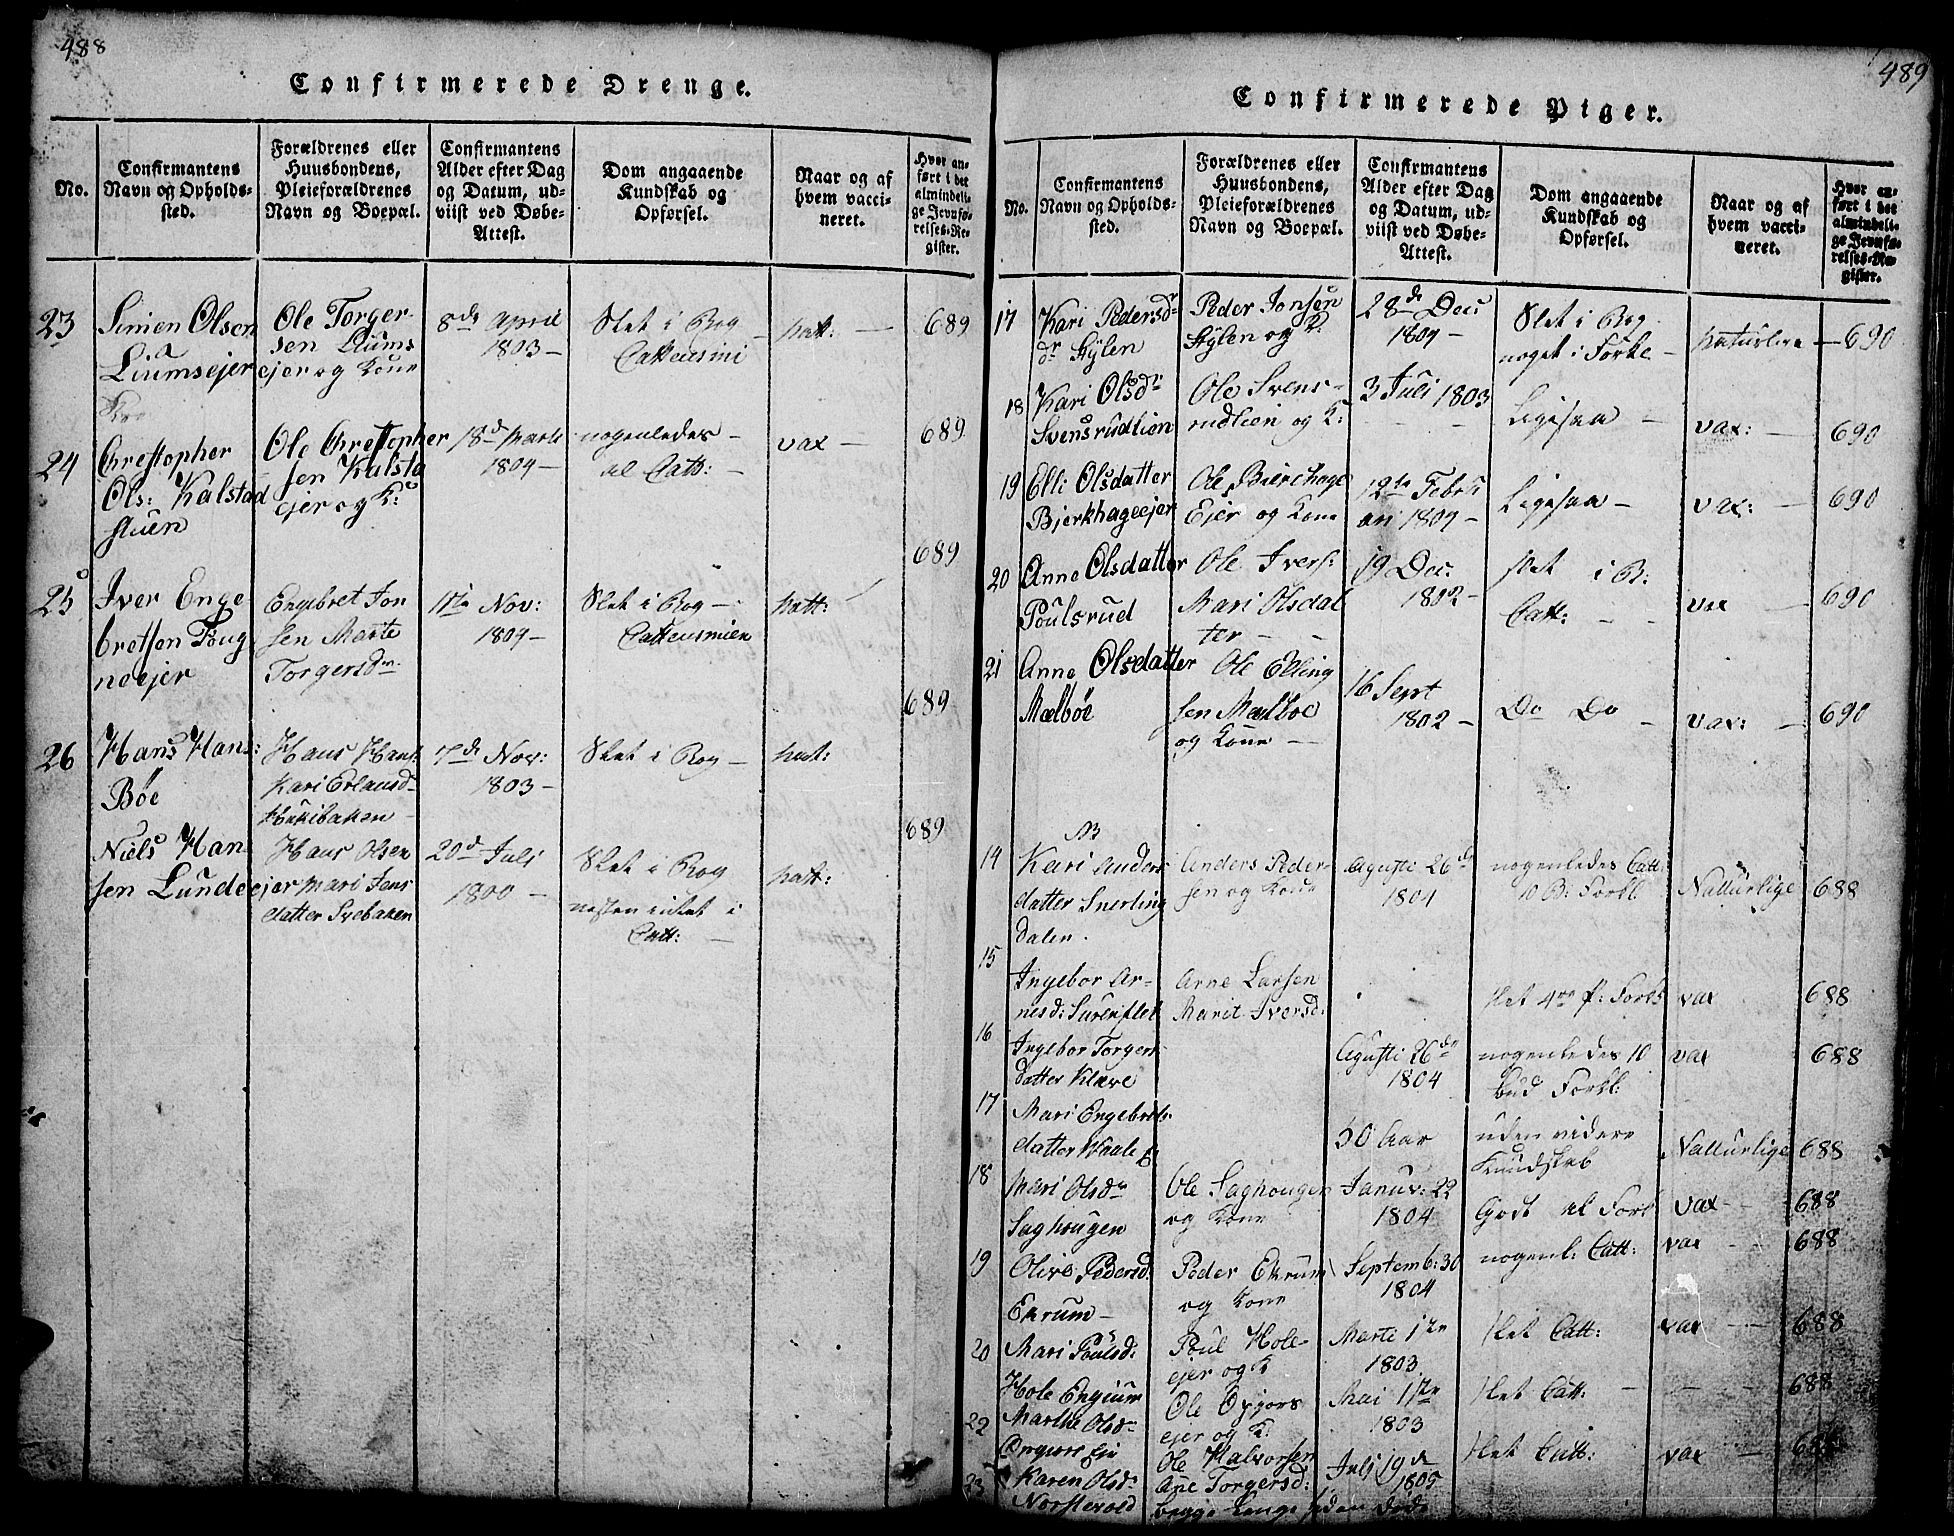 488
Confirmerede Drenge.
No.
Confirmantens
Navn og Opholds-
sted.
Forældrenes eller
Huusbondens,
Pleieforældrenes
Navn og Boepæl.
Confirmantens
Alder efter Dag
og Datum, ud-
viist ved Døbe-
Attest.
Dom angaaende
Kundskab og
Opførsel.
Naar og af
hvem vacci-
neret.
Hvor an-
ført i det
almindeli-
ge Jevnfø-
relses-Re-
gister.
23
Simen Olsen
Liumsejer
Ole Torger-
sen Liums
ejer og Kone
8de April
1803 –
Slet i Bog
Cattensmi
natt: —
689
24
Christopher
Ols: Kalstad
stuen
Ole Christopher
sen Kalsta
ejer og K:
18d Marti
1804 –
nogenledes –
al Catt: –
vax —
689
25
Iver Enge
bretsen Foug
neejer
Engebret Jon
sen Marte
Torgersdr
11te Nov:
1804 –
Slet i Bog –
Cattensmien
natt:
689
26
Hans Hans:
Bøe
Hans Hans:
Kari Erlandsd
7de Nov:
1803 –
Slet i Bog –
natt:
689
Niels Han-
sen Lundeejer
Hans Olsen
Mari Jens
datter Svebaken
20d Juli
1800 –
Slet i Bog
nesten intet i
Catt: —
natt:
689
489
Confirmerede Piger.
No.
Confirmantens
Navn og Opholds-
sted.
Forældrenes eller
Huusbondens,
Pleieforældrenes
Navn og Boepæl.
Confirmantens
Alder efter Dag
og Datum, ud-
viist ved Døbe-
Attest.
Dom angaaende
Kundskab og
Opførsel.
Naar og af
hvem vacci-
neret.
Hvor an-
ført i det
almindeli-
ge Jevnfø-
relses-Re-
gister.
17
Kari Pedersd
dr Stÿlen
Peder Jonsen
Stÿlen og K:
28de Dec:
1804 –
Slet i Bog
noget i Forkl –
naturlere —
690
18
Kari Olsdr
Svensrudlien
Ole Svens-
rudlien og K:
3 Juli 1803
Ligesaa –
vax: —
690
19
Elli Olsdatter
Bjerkhageejer
Ole Bierchage
Ejer og Kone
12te Febru
ari 1804 –
Ligesaa –
vax: –
690
20
Anne Olsdatter
Poulsrud
Ole Ivers:
Mari Olsdat
ter – –
19 Dec:
1802 –
slet i B:
Catt: – –
vax –
690
21
Anne Olsdatter
Mælbøe
Ole Elling
sen Mælboe
og Kone —
16 Sept
1802 –
Do Do –
vax: –
690
NB
14
Kari Anders
datter Snerling
dalen.
Anders Peder-
sen og Kone
Agusti 26de
1804
nogenledes Catt:
10 B: Forkl
Naturlige
688
15
Ingebor Ar-
nesd:
Arne Larsen
Marit Iversd:
slet 4re p: Forkl
vax
688
16
Ingebor Torger
datter Klæve
Agusti 26de
1804
nogenledes 10
bud Forkl:
vax
688
17
Mari Engebrets
datter
30 Aar
uden videre
Kundskab
Naturlige
688
18
Mari Olsdr
Saghougen
Ole Saghougen
og Kone
Januv: 22
1804
Godt al Forkl
vax – –
688
19
Olive Pedersd:
Ekrum –
Peder Ekrum
og Kone
Septemb: 30
1804
nogenl: Catt:
vax
688
20
Mari Poulsd:
Hole Engium
Poul Hole-
ejer og K
Marti 1te
1803
slet Catt:
vax – –
688
22
Marthe Olsdr
Ole Opjors
ejer og K:
Mai 1ste
1803
slet Catt: – – –
688
23
Karen Olsdr
Norstevold
Ole Halvorsen
Ane Torgersd:
begge længe siden døde
Juli 19d
1805
slet Catt:
vax –
688